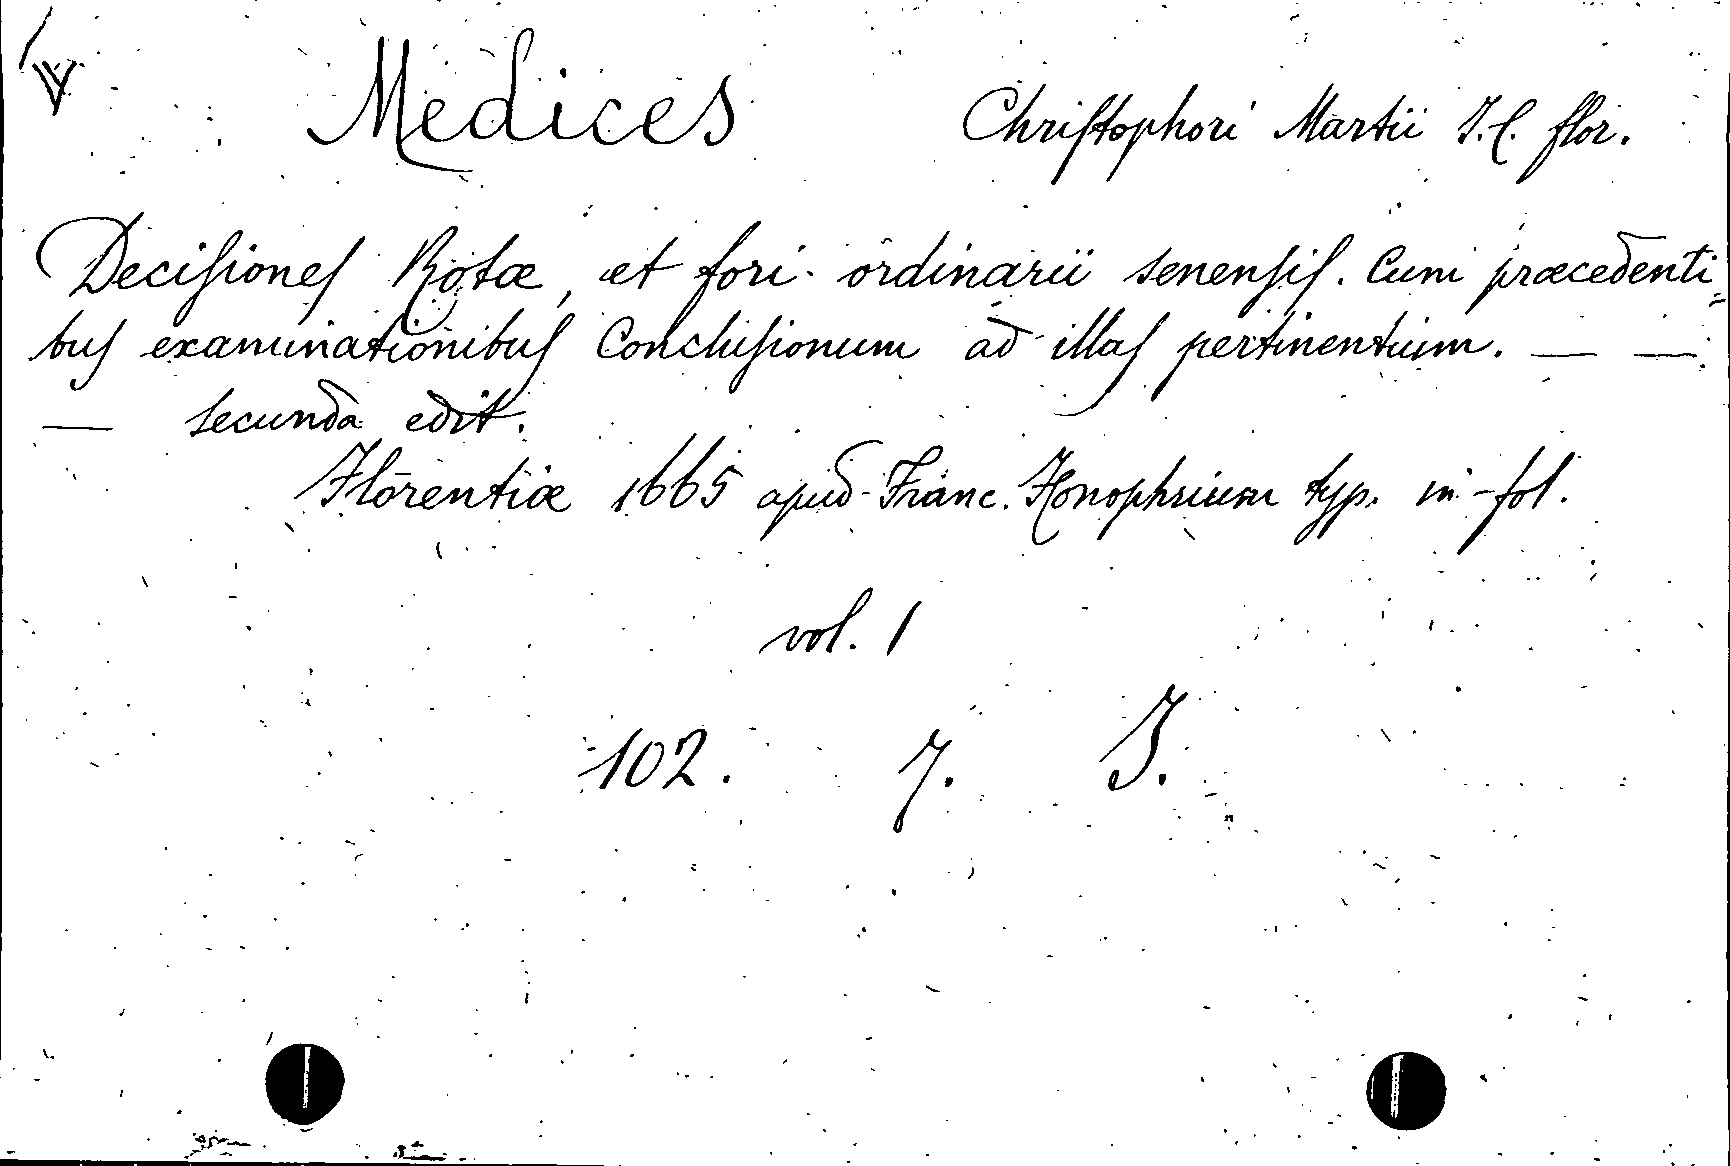 V
Medices Chriſtophori Martii J.C. flor.
Deciſioneſ Rotæ, et fori ordinarii senenſiſ. Cum præcedenti=
buſ examinationibuſ Concluſionum ad illaſ pertinentium. — —
— secunda edit.
Florentiæ 1665 apud Franc. Honophrium typ. in-fol.
vol. 1
102. 7. J.